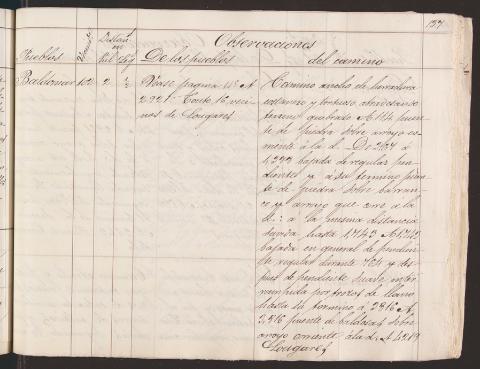 137
Observaciones
Pueblos
De los pueblos
del camino
Baldomar 102 2 ½
Vease pagina 45 A
292 1 Corte 16 veci-
nos de Lougares
Camino ancho de herradura
costanero y tortuoso atravesando
terreno quebrado A 114 puen-
te de piedra sobre arroyo co-
rriente á la d. De 267 á
1,293 bajada de regular pen-
diente y á su termino puen-
te de piedra sobre barran-
co y arroyo que corre á la
d.: á la misma distancia
subida hasta 1,743 A 1,743
bajada en general de pendien-
te regular durante 764 y des-
pues de pendiente suave inter-
rumpida por trozos de llano
hasta su termino á 2816 A
2,816 puente de baldosas sobre
arroyo corriente á la d. A 4,219
Lougares